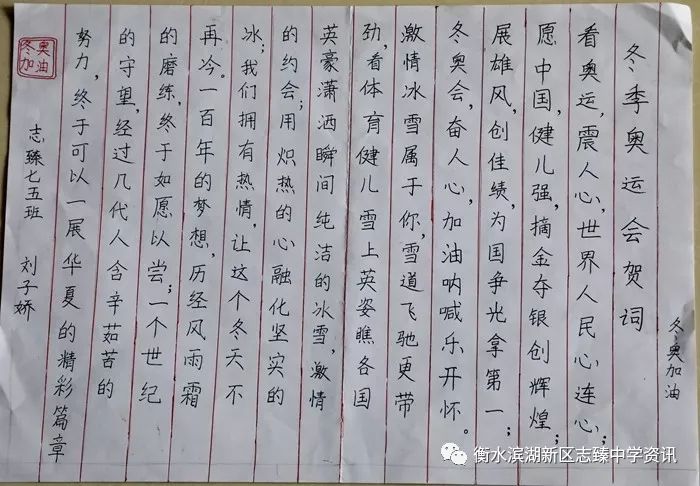 冬奥加油
冬季奥运会贺词
看奥运,震人心,世界人民心连心;
愿中国,健儿强,摘金夺银创辉煌;
展雄风,创佳绩,为国争光拿第一;
冬奥会,奋人心,加油呐喊乐开怀。
激情冰雪属于你,雪道飞驰更带
劲,看体育健儿雪上英姿瞧各国
英豪潇洒瞬间纯洁的冰雪,激情
的约会;用炽热的心融化坚实的
冰;我们拥有热情,让这个冬天不
再冷。一百年的梦想,历经风雨霜
的磨练,终于如愿以尝;一个世纪
的守望,经过几代人含辛茹苦的
努力,终于可以一展华夏的精彩篇章
志臻七五班 刘子娇
冬奥
加油
衡水滨湖新区志臻中学资讯